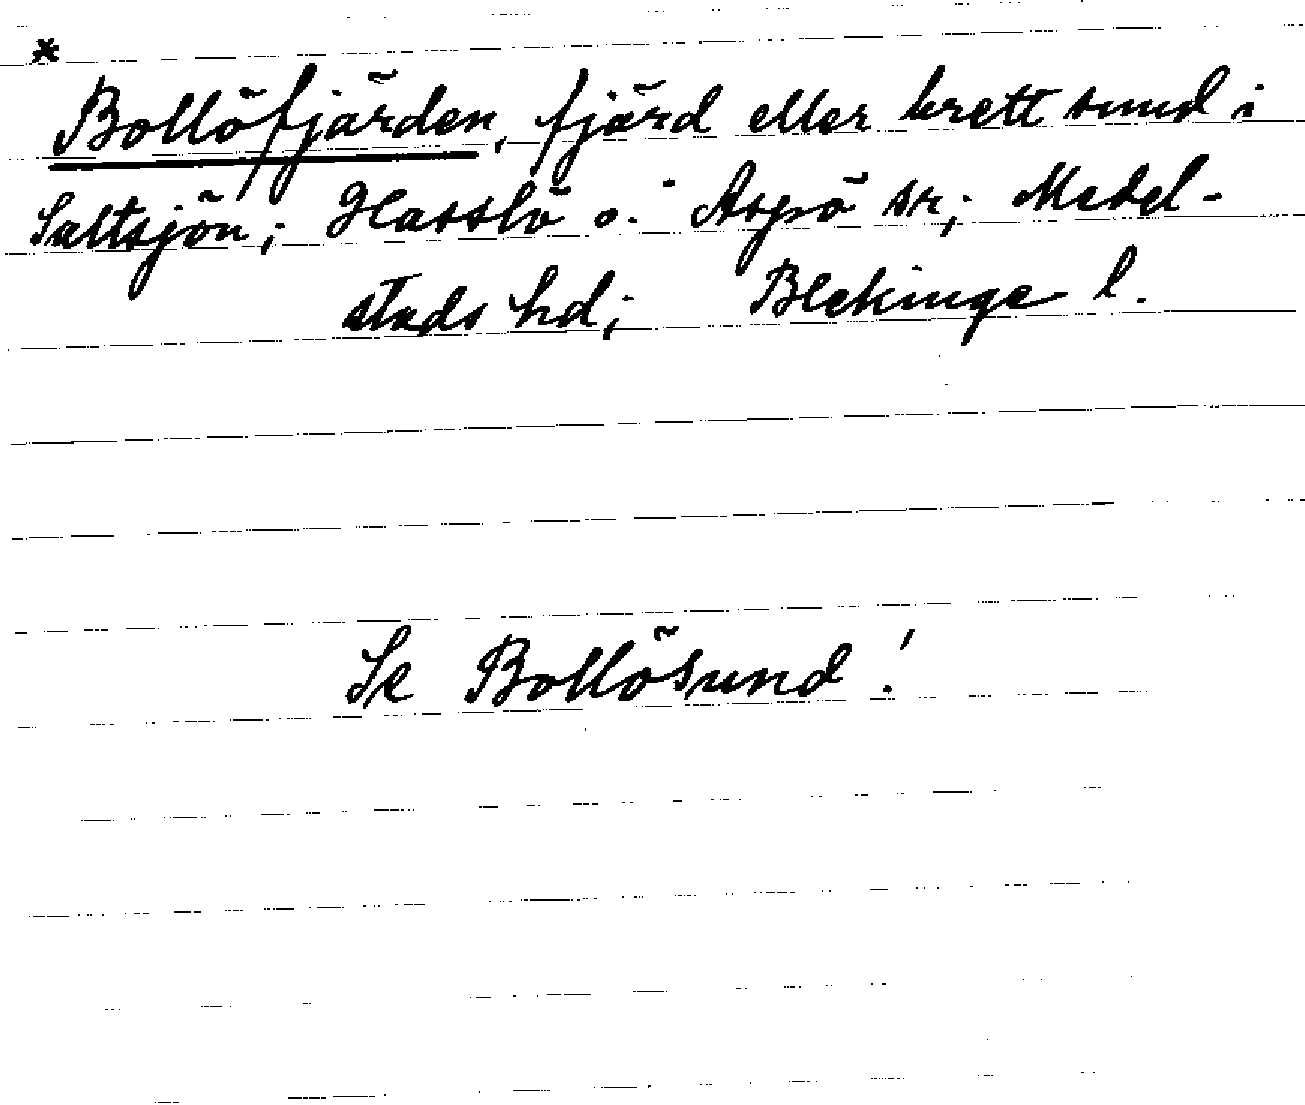 *
Bollöfjärden, fjärd eller brett sund i
Saltsjön; Hasslö o. Aspö sn; Medel-
stads hd; Blekinge l.
Se Bollösund!